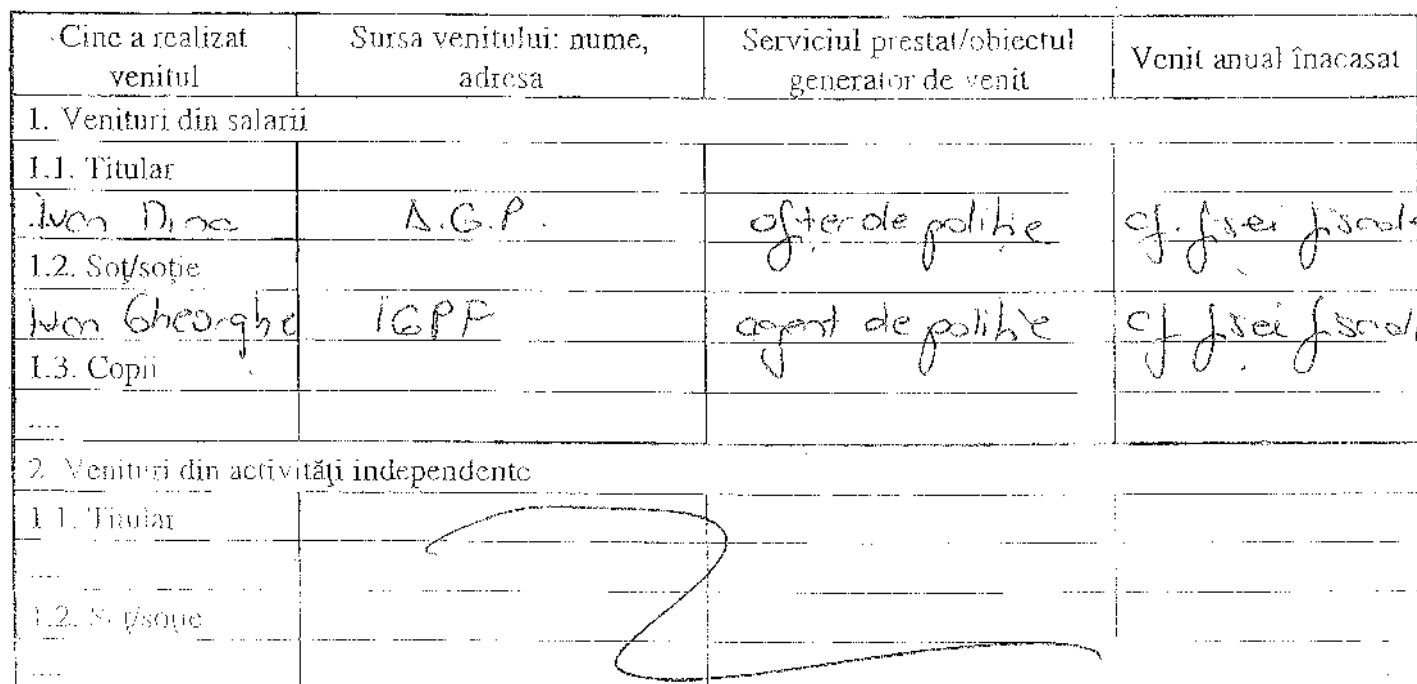 Cine a realizat venitul | Sursa venitului: nume, adresa | Serviciul prestat/obiectul generator de venit | Venit anual înacasat
1. Venituri din salarii
1.1. Titular
Ivan Dina | D.G.P. | ofițer de poliție | cf. fisei fiscale
1.2. Soţ/soţie
Ivan Gheorghe | IGPF | agent de poliție | cf. fisei fiscale
1.3. Copii
....
2. Venituri din activităţi independente
1.1. Titular
....
1.2. Soţ/soţie
....